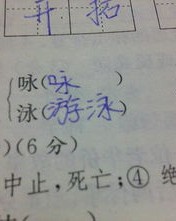 开 拓
咏(咏 )
泳(游泳)
)(6 分)
中止,死亡;④ 绝